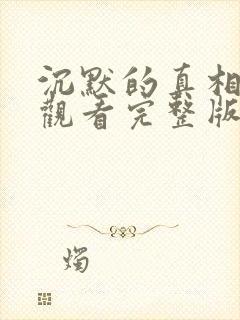 沉默的真相
觀看完整版
燭